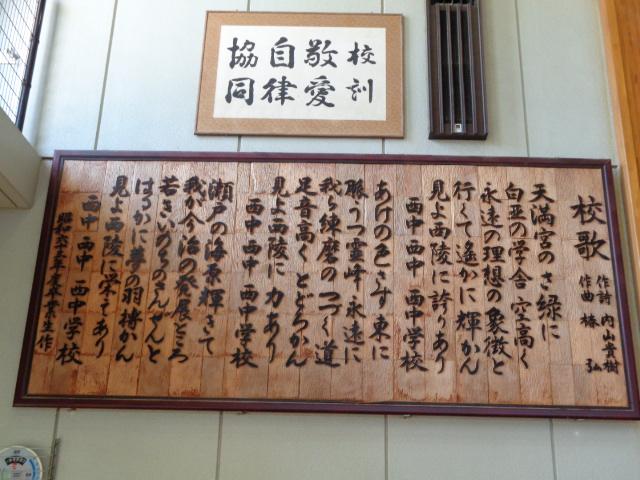 校訓
敬愛
自律
協同
校歌
作詩 内山貴樹
作曲 椿 弘
天満宮のさ緑に
白亜の学舎 空高く
永遠の理想の象徴と
行くて遙かに輝かん
見よ西陵に誇りあり
西中 西中 西中学校
あけの色さす東に
勝うつ霊峰 永遠に
我ら練磨のつづく道
足音高くとどろかん
見よ西陵に力あり
西中 西中 西中学校
瀬戸の海原輝きて
我が今治の発展どころ
若きいのちのさんぜんと
はるかに夢の羽搏かん
見よ西陵に栄えあり
西中 西中 西中学校
昭和六三年度卒業生作